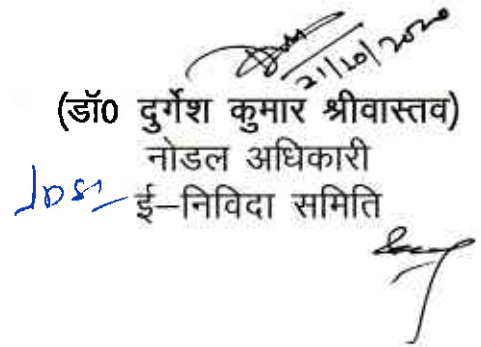 21/10/2020
(डॉ0 दुर्गेश कुमार श्रीवास्तव)
नोडल अधिकारी
ई–निविदा समिति